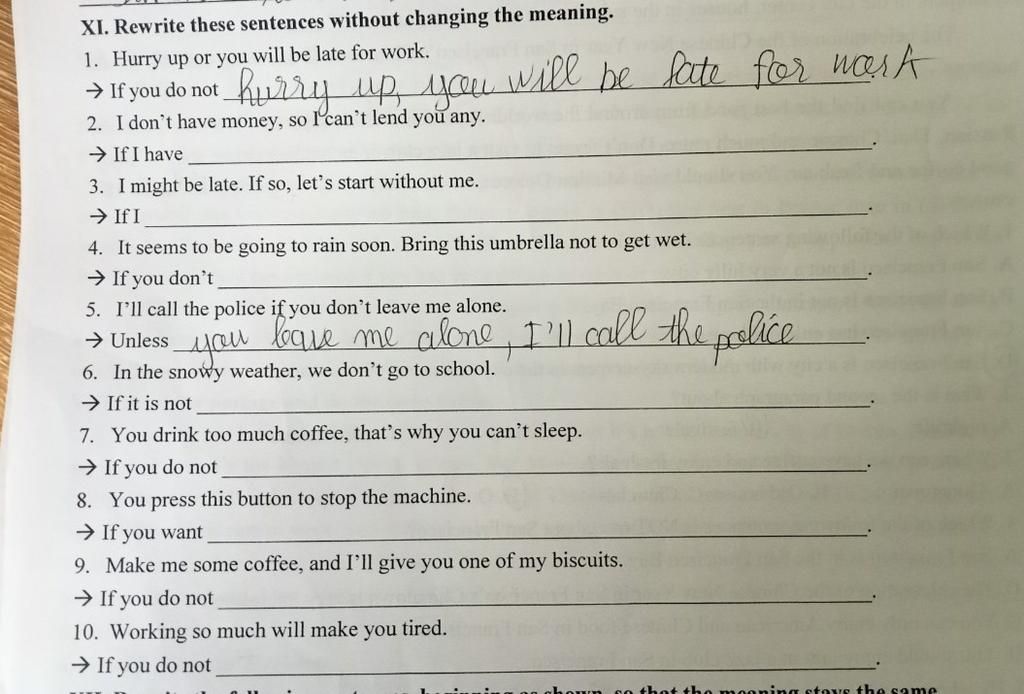 XI. Rewrite these sentences without changing the meaning.
1. Hurry up or you will be late for work.
→ If you do not hurry up, you will be late for work
2. I don't have money, so I can't lend you any.
→ If I have ___.
3. I might be late. If so, let's start without me.
→ If I ___.
4. It seems to be going to rain soon. Bring this umbrella not to get wet.
→ If you don't ___.
5. I'll call the police if you don't leave me alone.
→ Unless you leave me alone, I'll call the police.
6. In the snowy weather, we don't go to school.
→ If it is not ___.
7. You drink too much coffee, that's why you can't sleep.
→ If you do not ___.
8. You press this button to stop the machine.
→ If you want ___.
9. Make me some coffee, and I'll give you one of my biscuits.
→ If you do not ___.
10. Working so much will make you tired.
→ If you do not ___.
beginning as shown, so that the meaning stays the same